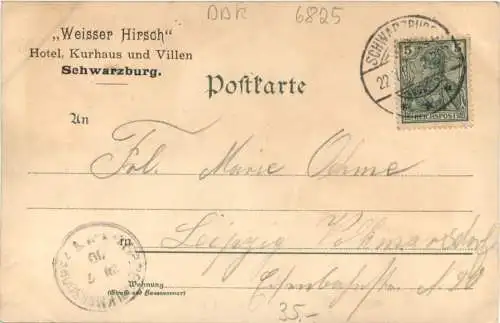 DDR 6825
„Weisser Hirsch"
Hotel, Kurhaus und Villen
Schwarzburg.
SCHWARZBURG
22
5 5
REICHSPOST
Postkarte
An
Frl. Marie Oehme
in Leipzig Volkmarsdorf
Wohnung
(Straße und Hausnummer)
Eisenbahnstr.
35.-